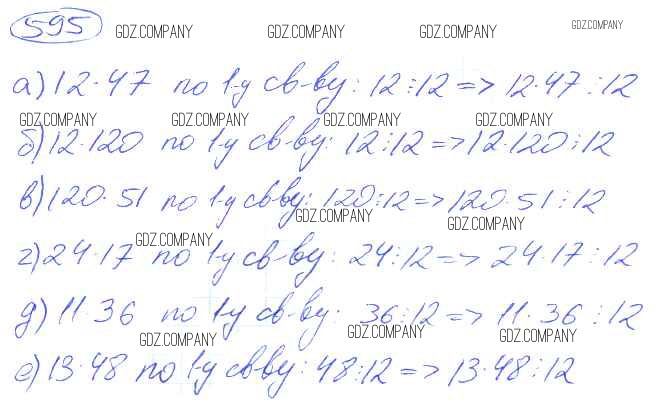 595
GDZ.COMPANY GDZ.COMPANY GDZ.COMPANY GDZ.COMPANY
а) 12·47 по 1-у св-ву: 12⋮12 => 12·47⋮12
GDZ.COMPANY GDZ.COMPANY GDZ.COMPANY GDZ.COMPANY
б) 12·120 по 1-у св-ву: 12⋮12 => 12·120⋮12
в) 120·51 по 1-у св-ву: 120⋮12 => 120·51⋮12
GDZ.COMPANY GDZ.COMPANY
GDZ.COMPANY
г) 24·17 по 1-у св-ву: 24⋮12 => 24·17⋮12
д) 11·36 по 1-у св-ву: 36⋮12 => 11·36⋮12
GDZ.COMPANY GDZ.COMPANY GDZ.COMPANY
е) 13·48 по 1-у св-ву: 48⋮12 => 13·48⋮12